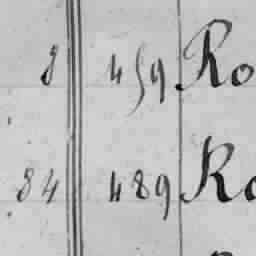 8 459 Ro
84 489 Ro